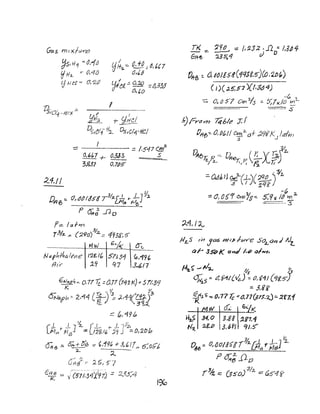 Gas mixture
y SiH4 = 0.40 y'H2 = 0.40/0.60 = 0.667
y H2 = 0.40
y HCl = 0.20 y'HCl = 0.20/0.60 = 0.333
D SiH4-mix = 1 / (y'H2/D SiH4-H2 + y'HCl/D SiH4-HCl)
= 1 / (0.667/3.831 + 0.333/0.705) = 1.547 cm²/s
2.4.11
DAB = 0.001858 T^3/2 [1/MA + 1/MB]^1/2 / P σAB² ΩD
P = 1 atm
T^3/2 = (290)^3/2 = 4938.5
MW ε/κ σ
Naphthalene 128.16 571.39 6.496
Air 29 97 3.617
= 0.77 Tc = 0.77 (742K) = 571.39
= 6.496
[1/MA + 1/MB]^1/2 = [1/128.16 + 1/29]^1/2 = 0.206
σAB = σA+σB/2 = 6.496 + 3.617/2 = 5.056
σAB² = 25.57
εAB/κ = √(571.39)(97) = 235.4
196
TK/εAB = 290/235.4 = 1.232 ∴ ΩD = 1.304
DAB = 0.001858 (4938.5)(0.206) / (1)(25.57)(1.304)
= 0.057 cm²/s = 5.7x10^-6 m²/s
b) From Table J.1
DAB = 0.0611 cm²/s at 298 K, 1 atm
DAB T2,P2 = DAB T1,P1 (P1/P2)(T2/T1)^3/2
= 0.0611 cm²/s (1)(290/298)^3/2
= 0.059 cm²/s = 5.9x10^-6 m²/s
2.4.12
H2S in gas mixture SO2 and N2
at 350K and 1.0 atm.
H2S – N2
σH2S = 0.841 (Vc)^1/3 = 0.841 (98.5)^1/3
= 3.88
εH2S/κ = 0.77 Tc = 0.77(373.2) = 287.4
MW σ ε/κ
H2S 34.0 3.88 287.4
N2 28.0 3.681 91.5
DAB = 0.001858 T^3/2 [1/MA + 1/MB]^1/2 / P σAB² ΩD
T^3/2 = (350)^3/2 = 6548